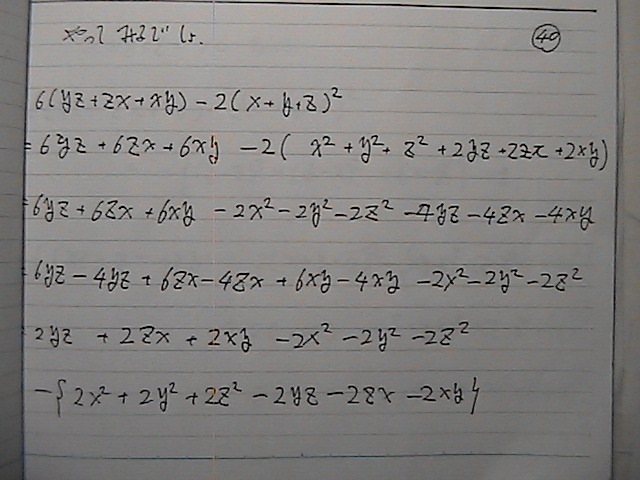 ㊵
6(yz+zx+xy) -2(x+y+z)²
= 6yz + 6zx + 6xy -2( x²+y²+ z²+2yz+2zx+2xy)
= 6yz + 6zx + 6xy -2x²-2y²-2z² -4yz-4zx-4xy
= 6yz-4yz + 6zx-4zx + 6xy-4xy -2x²-2y²-2z²
= 2yz + 2zx + 2xy -2x²-2y²-2z²
-{2x²+2y²+2z²-2yz-2zx-2xy}